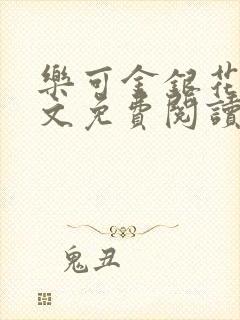 樂可金銀花
文免費閱讀
鬼丑